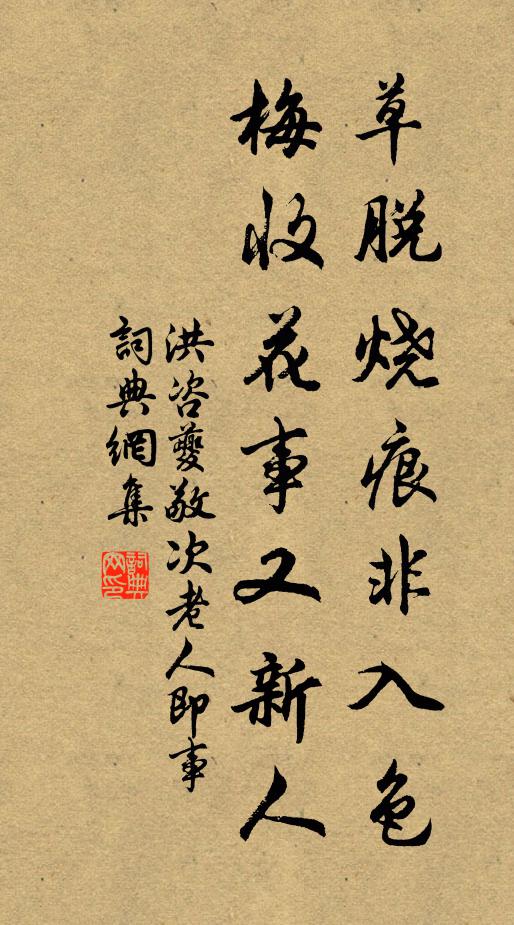 草脱烧痕非入色
梅收花事又新人
洪咨夔敬次老人即事
詞典網集
詞典
网印